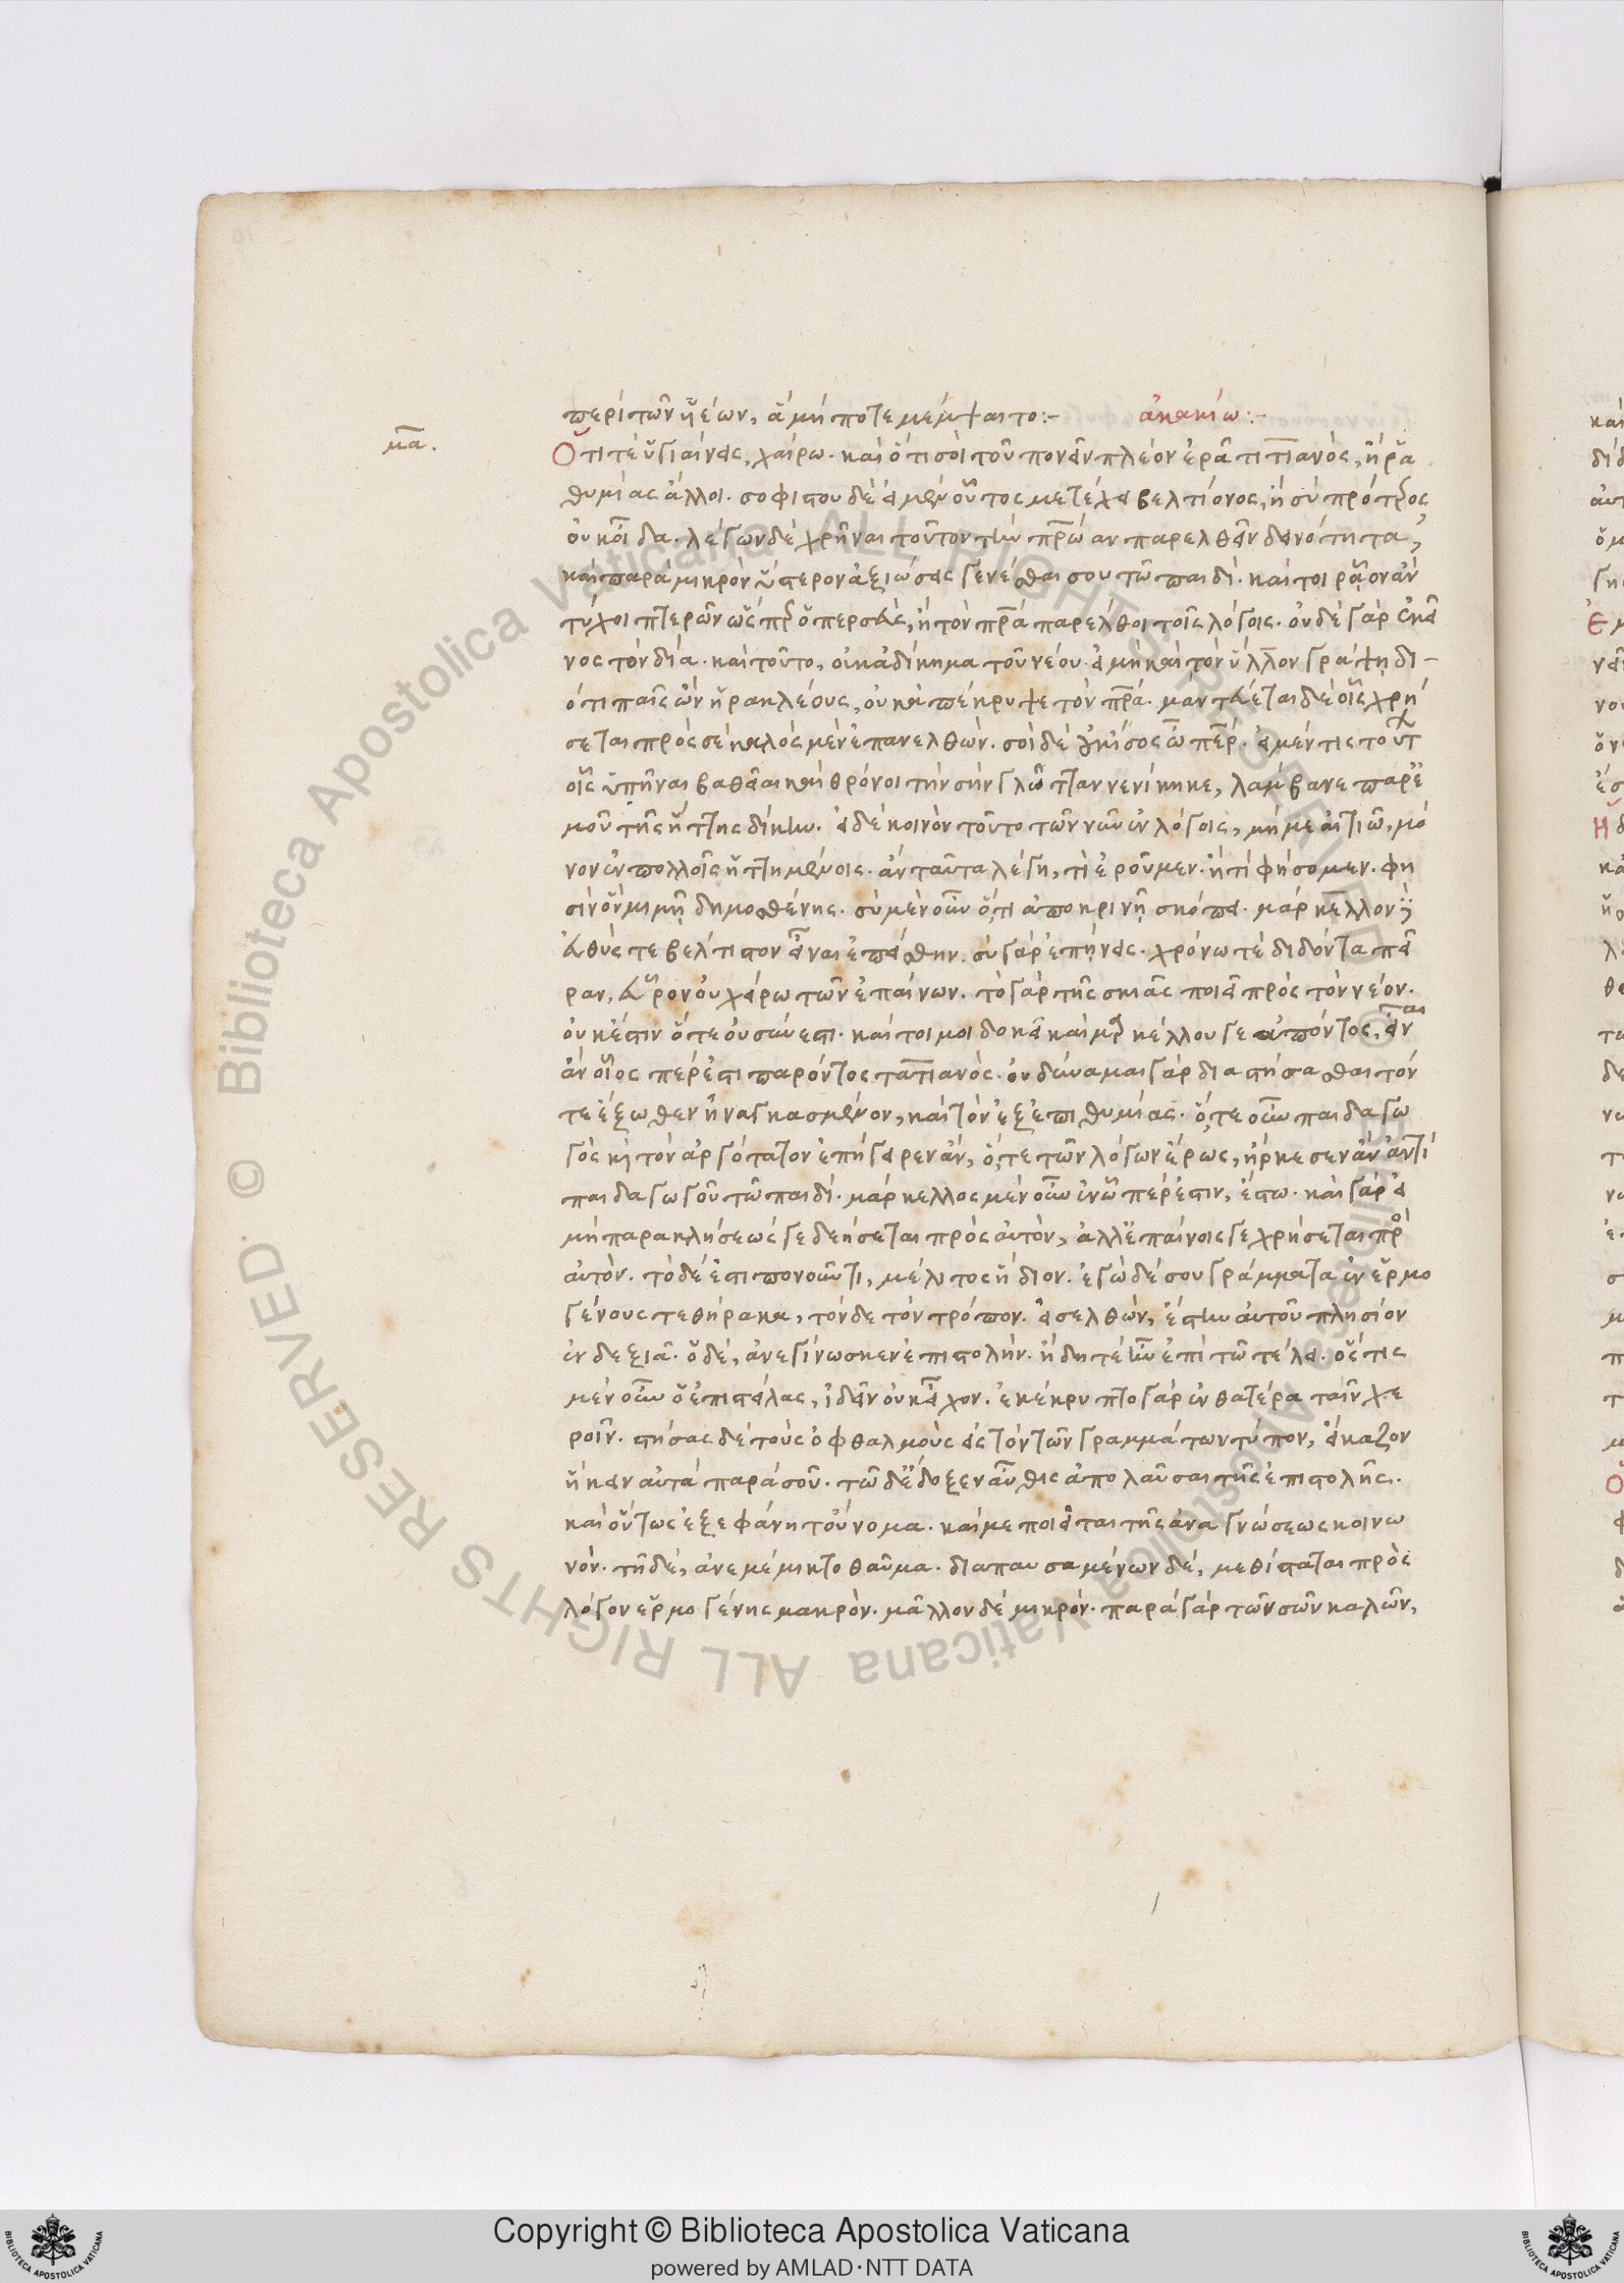 περὶ τῶν ἡξέων, ἃ μή ποτε μέμψαιτο:- ἀκακίω:-
μα.
Ὅτι τε ὑγιαίνεις, χαίρω. καὶ ὅτι σοι τοῦ πονεῖν πλέον ἐρᾶ τιτιανὸς, ἢ ῥᾳ
θυμίας ἄλλοι. σοφιστοῦ δὲ εἰ μὲν οὗτος μετέχει βελτίονος, ἢ σὺ πρότερος
οὐκ οἶδα. λέγων δὲ χρῆναι τοῦτον τὴν πρώαν παρελθεῖν δεινότητα,
καὶ παρὰ μικρὸν ὕστερον ἀξιώσεις γενέσθαι σου τῶ παιδί. καίτοι ῥᾷον ἂν
τύχοι πτερῶν ὥσπερ ὁ περσεὺς, ἢ τὸν πρα παρέλθοι τοῖς λόγοις. οὐδὲ γὰρ ἐκεῖ
νος τὸν δία. καὶ τοῦτο, οὐκ ἀδίκημα τοῦ νέου. εἰ μὴ καὶ τὸν ὕλλον γράψῃ δι-
ότι παῖς ὢν ἡρακλέους, οὐκ ἀπέκρυψε τὸν πρα. μαντεύεται δὲ οἷς χρή
σεται πρὸς σὲ καλὸς μὲν ἐπανελθών. σοὶ δὲ οὐκ ἴσος ὦ περ. εἰ μέν τις τοῦτ
οἷς ὑπῆναι βαθεῖαι καὶ θρόνοι τὴν σὴν γλῶτταν νενίκηκε, λάμβανε παρ' ἐ
μοῦ τῆς ἥττης δίκην. εἰ δὲ κοινὸν τοῦτο τῶν νῦν ἐν λόγοις, μή με αἰτιῶ, μό
νον ἐν πολλοῖς ἡττημένοις. ἂν ταῦτα λέγῃ, τί ἐροῦμεν. ἢ τί φήσομεν. φη
σὶν ὃν μιμῇ δημοσθένης. σὺ μὲν οὖν ὅτι ἀποκρινῇ σκόπει. μάρκελλον
εὐθύς τε βέλτιστον εἶναι ἐπείσθην. σὺ γὰρ ἐπῄνεις. χρόνω τε διδόντα πεῖ
ραν, εὗρον οὐ χείρω τῶν ἐπαίνων. τὸ γὰρ τῆς σκιᾶς ποιεῖ πρὸς τὸν νέον.
οὐκ ἔστιν ὅτε οὐ σύνεστι. καίτοι μοι δοκεῖ καὶ μαρκέλλου γε ἀπόντος, εἶναι
ἂν οἷός πέρ ἐστι παρόντος τατιανός. οὐ δύναμαι γὰρ διαστήσασθαι τόν
τε ἔξωθεν ἠναγκασμένον, καὶ τὸν ἐξ ἐπιθυμίας. ὅ,τε οὖν παιδαγω
γὸς καὶ τὸν ἀργότατον ἐπήγειρεν ἂν, ὅ,τε τῶν λόγων ἔρως, ἤρκεσεν ἂν ἀντὶ
παιδαγωγοῦ τῶ παιδί. μάρκελλος μὲν οὖν ἐν ᾧ πέρ ἐστιν, ἔστω. καὶ γὰρ εἰ
μὴ παρακλήσεώς γε δεήσεται πρὸς αὐτὸν, ἀλλ' ἐπαίνοις γε χρήσεται πρὸς
αὐτόν. τὸ δέ ἐστι πονοῦντι, μέλιτος ἥδιον. ἐγὼ δέ σου γράμματα ἐν ἑρμο
γένους τεθήρακα, τόνδε τὸν τρόπον. εἰσελθὼν, ἔστην αὐτοῦ πλησίον
ἐν δεξιᾷ. ὁ δὲ, ἀνεγίνωσκεν ἐπιστολήν. ἤδη τε ἦν ἐπὶ τῶ τέλει. ὅστις
μὲν οὖν ὁ ἐπιστείλας, ἰδεῖν οὐκ εἶχον. ἐκέκρυπτο γὰρ ἐν θατέρα ταῖν χε
ροῖν. στήσας δὲ τοὺς ὀφθαλμοὺς εἰς τὸν τῶν γραμμάτων τύπον, εἴκαζον
ἥκειν αὐτὰ παρὰ σοῦ. τῶ δὲ ἔδοξεν αὖθις ἀπολαῦσαι τῆς ἐπιστολῆς.
καὶ οὕτως ἐξεφάνη τοὔνομα. καί με ποιεῖται τῆς ἀναγνώσεως κοινω
νόν. τῇ δὲ, ἀνεμέμικτο θαῦμα. διαπαυσαμένων δὲ, μεθίσταται πρὸς
λόγον ἑρμογένης μακρόν. μᾶλλον δὲ μικρόν. παρὰ γὰρ τῶν σῶν καλῶν,
Copyright © Biblioteca Apostolica Vaticana
powered by AMLAD·NTT DATA